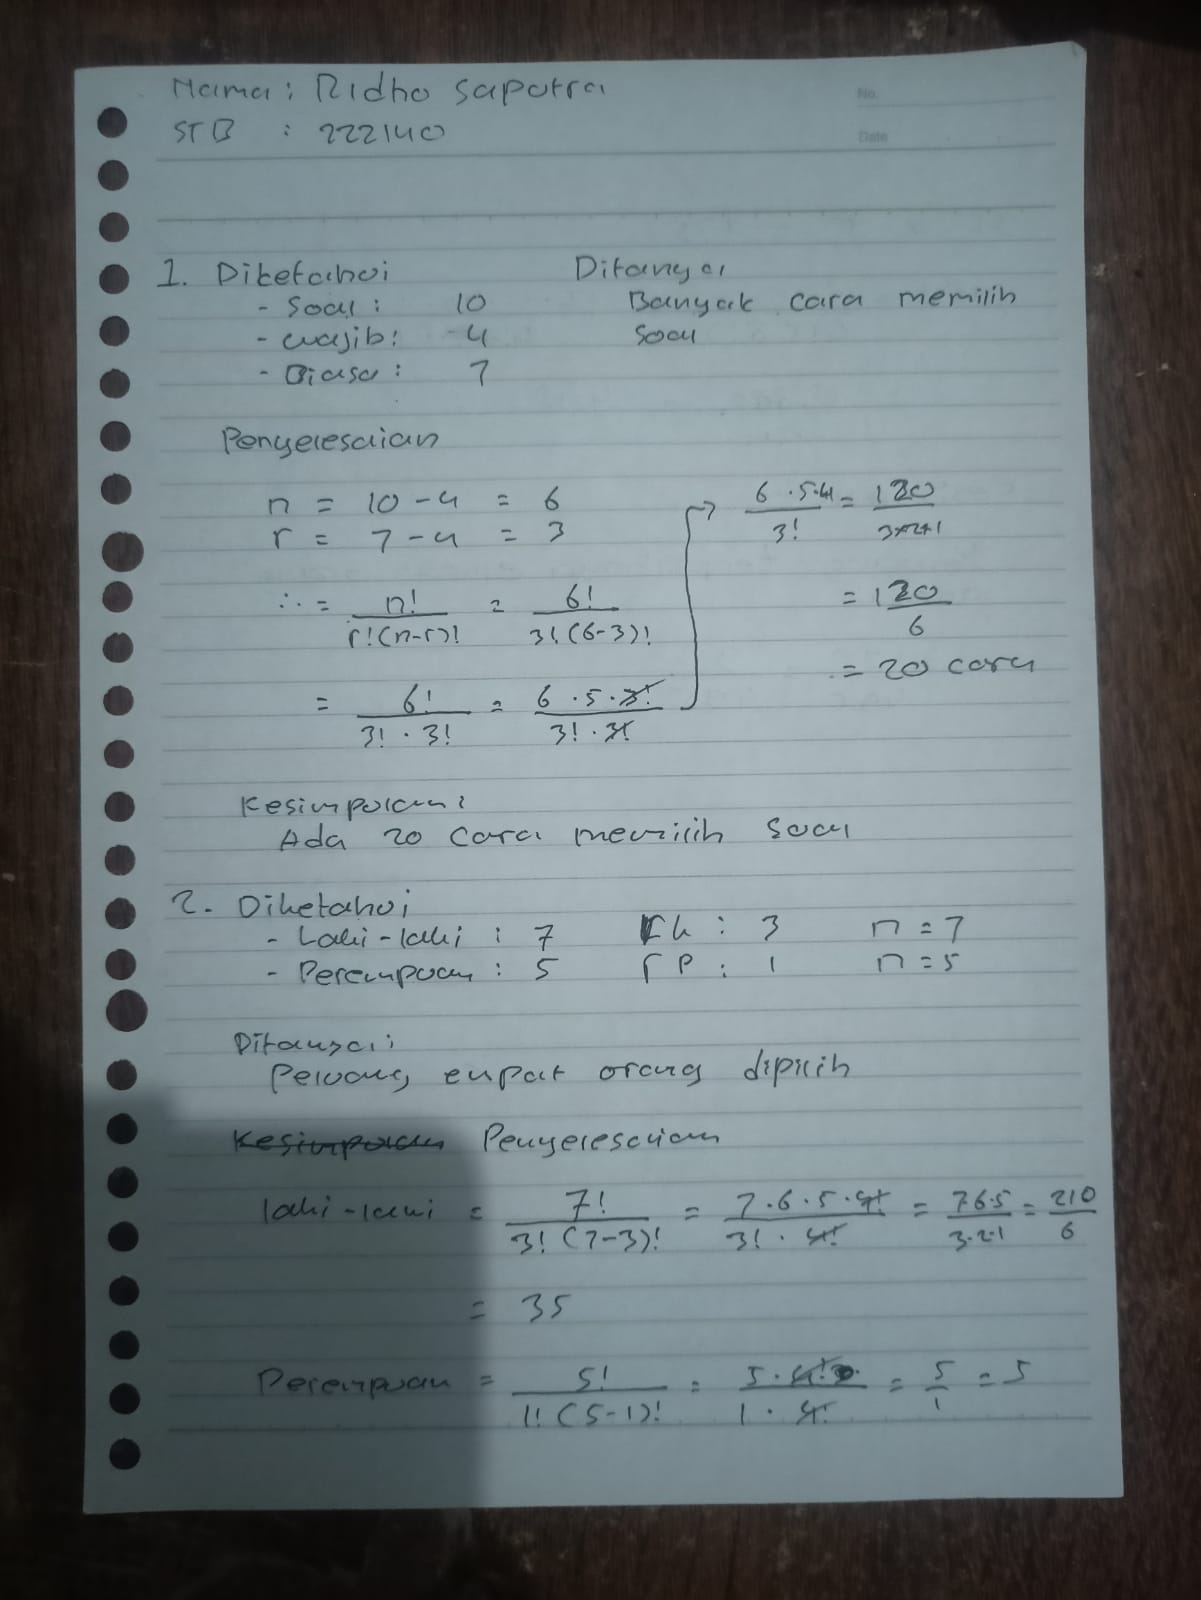 No.
Date
Nama : Ridho saputra
STB : 222140
1. Diketahui Ditanya
- Soal : 10 Banyak cara memilih
- wajib : 4 soal
- Biasa : 7
Penyelesaian
n = 10 - 4 = 6
r = 7 - 4 = 3
∴ = n! / r!(n-r)! = 6! / 3!(6-3)!
= 6! / 3! · 3! = 6 · 5 · 3! / 3! · 3!
→ 6 · 5 · 4 / 3! = 120 / 3×2×1
= 120 / 6
= 20 cara
Kesimpulan :
Ada 20 cara memilih soal
2. Diketahui
- Laki-laki : 7 rL : 3 n = 7
- Perempuan : 5 rP : 1 n = 5
Ditanya :
Peluang empat orang dipilih
Kesimpulan Penyelesaian
laki-laki = 7! / 3!(7-3)! = 7 · 6 · 5 · 4! / 3! · 4! = 7 6 · 5 / 3 · 2 · 1 = 210 / 6
= 35
Perempuan = 5! / 1!(5-1)! = 5 · 4! / 1 · 4! = 5 / 1 = 5